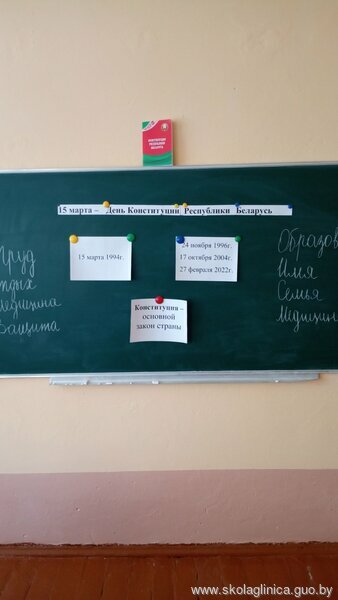 КОНСТИТУЦИЯ
РЕСПУБЛИКИ
БЕЛАРУСЬ
15 марта – День Конституции Республики Беларусь
15 марта 1994г.
24 ноября 1996г.
17 октября 2004г.
27 февраля 2022г.
Конституция –
основной
закон страны
Труд
тдых
Медицина
Защита
Образов
Имя
Семья
Медицин
www.skolaglinica.guo.by